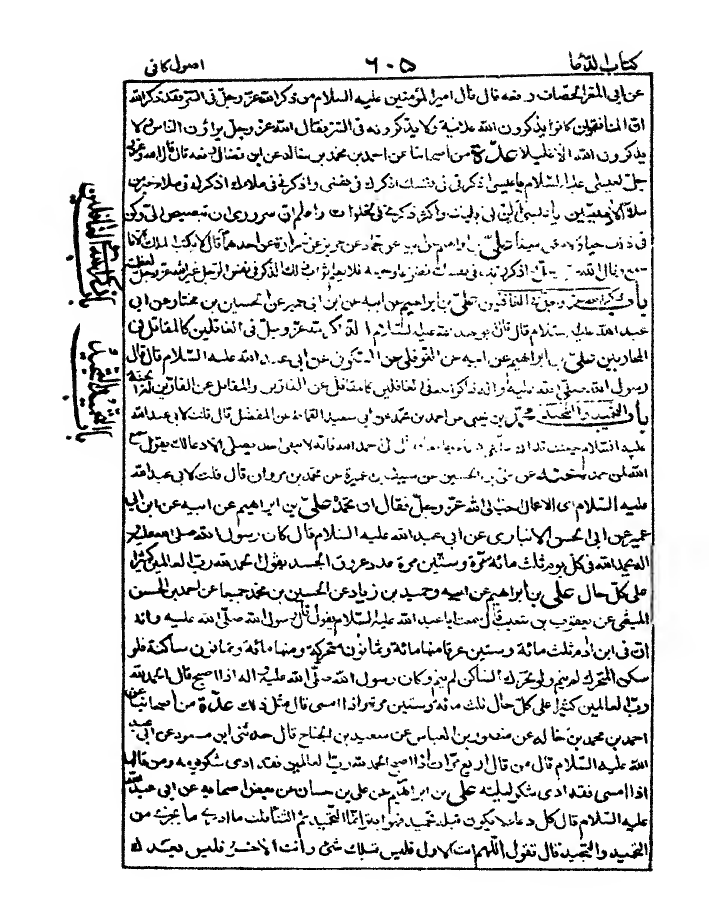 كتاب الدعا ٦٠٥ اصول كافى
عن ابى المعزا الخصاف رفعه قال قال امير المؤمنين عليه السلام من ذكر الله عز وجل فى السر فقد ذكر الله
ان المنافقين كانوا يذكرون الله علانية ولا يذكرونه فى السر فقال الله عز وجل يراؤن الناس ولا
يذكرون الله الا قليلا عدة من اصحابنا عن احمد بن محمد بن خالد عن ابن فضال رفعه قال قال الله عز و
جل لعيسى عليه السلام يا عيسى اذكرنى فى نفسك اذكرك فى نفسى واذكرنى فى ملاءك اذكرك فى ملاء خير من
ملاء الادميين يا عيسى الن لى قلبك واكثر ذكرى فى الخلوات واعلم ان سرورى ان تبصبص الى وكن
فى ذلك حيا ولا ميتا على بن ابراهيم عن ابيه عن حماد عن حريز عن زرارة عن احدهما قال لا يكتب الملك الا ما
سمع وقال الله عز وجل واذكر ربك فى نفسك تضرعا وخيفة فلا يعلم ثواب ذلك الذكر فى نفس الرجل غير الله عز وجل لعظمته
باب ذكر الله عز وجل فى الغافلين على بن ابراهيم عن ابيه عن ابن ابى عمير عن الحسين بن مختار عن ابى
عبد الله عليه السلام قال قال ابو عبد الله عليه السلام الذاكر لله عز وجل فى الغافلين كالمقاتل فى
المحاربين على بن ابراهيم عن ابيه عن النوفلى عن السكونى عن ابى عبد الله عليه السلام قال قال
رسول الله صلى الله عليه واله ذاكر الله فى الغافلين كالمقاتل عن الفارين والمقاتل عن الفارين له الجنة
باب التحميد والتمجيد محمد بن يحيى عن احمد بن محمد عن ابى سعيد القماط عن المفضل قال قلت لابى عبد الله
عليه السلام جعلت فداك علمنى دعاء جامعا فقال لى احمد الله فانه لا يبقى احد يصلى الا دعا لك يقول سمع
الله لمن حمده عنه عن على بن الحسين عن سيف بن عميرة عن محمد بن مروان قال قلت لابى عبد الله
عليه السلام اى الاعمال احب الى الله عز وجل فقال ان تحمده على بن ابراهيم عن ابيه عن ابن ابى
عمير عن ابى الحسن الانبارى عن ابى عبد الله عليه السلام قال كان رسول الله صلى الله عليه و
اله يحمد الله فى كل يوم ثلث مائة مرة وستين مرة عدد عروق الجسد يقول الحمد لله رب العالمين كثيرا
على كل حال على بن ابراهيم عن ابيه وحميد بن زياد عن الحسين بن محمد جميعا عن احمد بن الحسن
الميثمى عن يعقوب بن شعيب قال سمعت ابا عبد الله عليه السلام يقول قال رسول الله صلى الله عليه واله
ان فى ابن ادم ثلث مائة وستين عرقا منها مائة وثمانون متحركة ومنها مائة وثمانون ساكنة فلو
سكن المتحرك لم ينم ولو تحرك الساكن لم ينم وكان رسول الله صلى الله عليه واله اذا اصبح قال الحمد لله
رب العالمين كثيرا على كل حال ثلث مائة وستين مرة واذا امسى قال مثل ذلك عدة من اصحابنا عن
احمد بن محمد بن خالد عن منصور بن العباس عن سعيد بن الجناح قال حدثنى ابن مسعود عن ابى عبد
الله عليه السلام قال من قال اربع مرات اذا اصبح الحمد لله رب العالمين فقد ادى شكر يومه ومن قالها
اذا امسى فقد ادى شكر ليلته على بن ابراهيم عن على بن حسان عن بعض اصحابه عن ابى عبد الله
عليه السلام قال كل دعاء لا يكون قبله تحميد فهو ابتر انما التحميد ثم الثناء قلت ما ادرى ما يجزى من
التحميد والتمجيد قال تقول اللهم انت الاول فليس قبلك شئ وانت الاخر فليس بعدك
باب ذكر الله فى الغافلين
باب التحميد والتمجيد